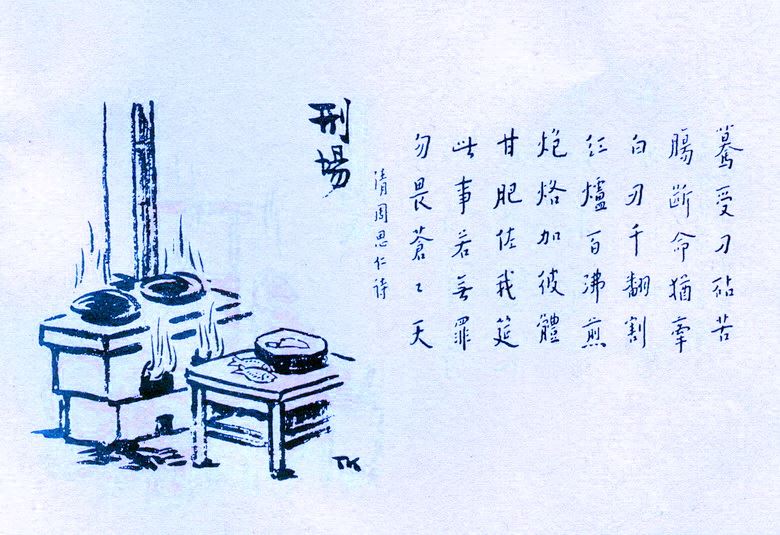 驀受刀砧苦
腸斷命猶牽
白刃千翻割
紅爐百沸煎
炮烙加彼體
甘肥佐我筵
此事若無罪
勿畏蒼〻天
清周思仁詩
刑場
TK